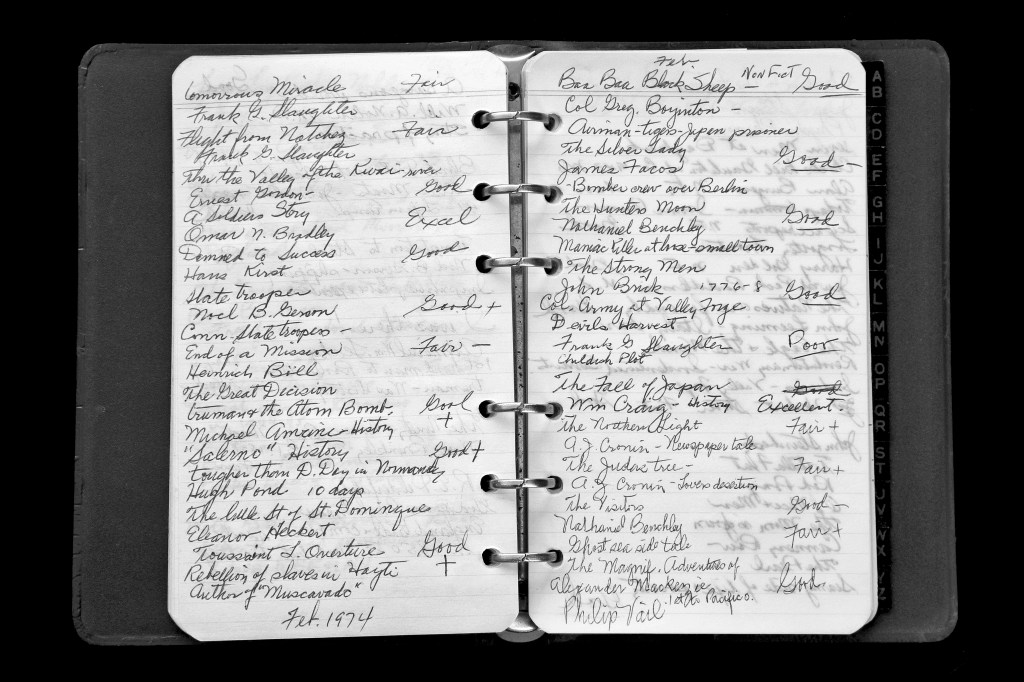 Tomorrows Miracle Fair
Frank G. Slaughter
Flight from Natchez Fair
Frank G. Slaughter
Thru the Valley of the Kwai-river
Ernest Gordon- Good
A Soldiers Story Excel
Omar N. Bradley
Damned to Success Good
Hans Kirst
State trooper
Noel B. Gerson Good +
Conn. State troopers -
End of a Mission Fair -
Heinrich Böll
The Great Decision
truman & the Atom Bomb. Good
Michael Amrine - History +
"Salerno" History Good +
tougher than D. Day in Normandy
Hugh Pond 10 days
The St of St. Domingue
Eleanor Heckert
Toussaint L. Overture Good
Rebellion of slaves in Hayti +
Author of "Muscavado"
Feb. 1974
Feb
Baa Baa Black Sheep - Non Fict Good
Col Greg. Boyington -
Airman-tigers-Japan prisoner
The Silver Lady
James Facos Good -
-Bomber crew over Berlin
The Hunters Moon
Nathaniel Benchley Good
Maniac Killer at small town
The Strong Men
John Brick 1776-8 Good
Col. Army at Valley Forge
Devils Harvest
Frank G Slaughter Poor
Childish Plot
The Fall of Japan Good
Wm Craig - History Excellent.
The Northern Light Fair +
A. J. Cronin - Newspaper tale
The Judas tree - Fair +
A. J. Cronin - Lovers desertion
The Visitors Good -
Nathaniel Benchley Fair +
Ghost sea side tale
The Magnif. Adventures of
Alexander Mackenzie Good
Philip Vail 1st to Pacific.
A
B
C
D
E
F
G
H
I
J
K
L
M
N
O
P
Q
R
S
T
U
V
W
X
Y
Z